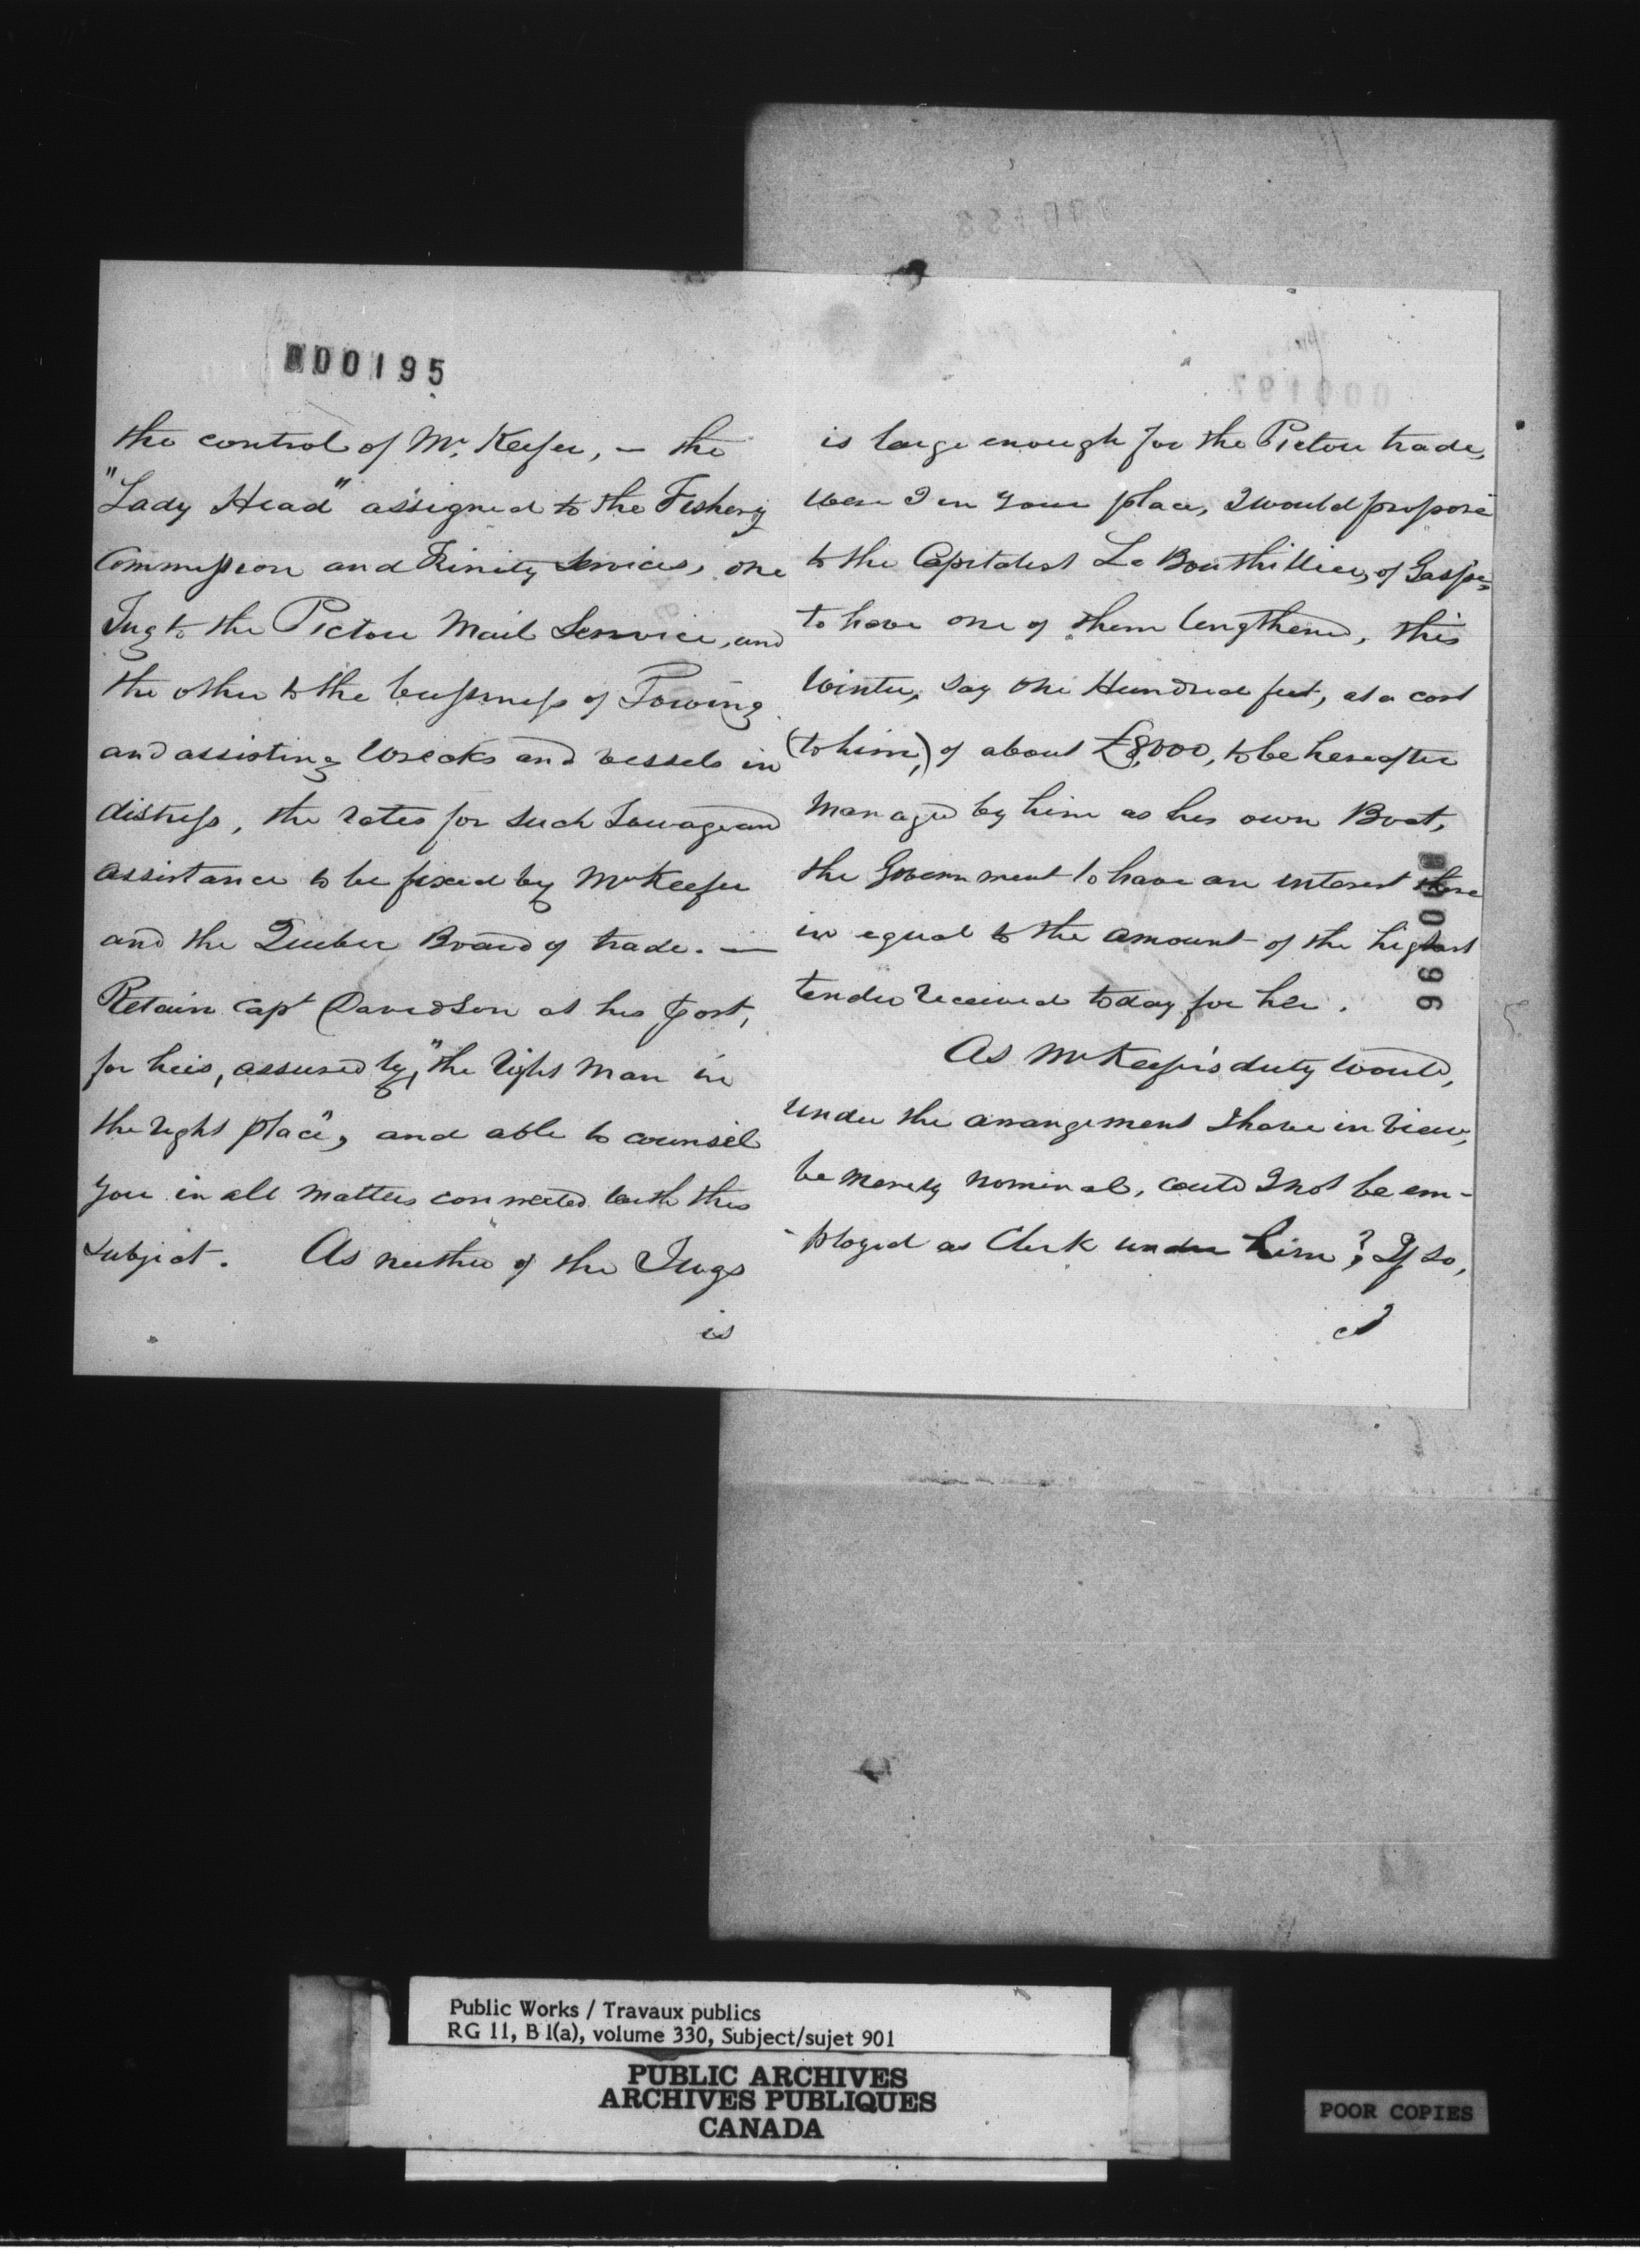 000195
the control of Mr. Keefer, — the
"Lady Head" assigned to the Fishery
Commission and Trinity Services, one
Tug to the Pictou Mail Service, and
the other to the business of Towing
and assisting Wrecks and vessels in
distress, the rates for such Towage and
assistance to be fixed by Mr Keefer
and the Quebec Board of trade. —
Retain Capt Davidson at his post,
for he is, assuredly, "the right man in
the right place", and able to counsel
you in all matters connected with this
subject. As neither of the Tugs
is
is large enough for the Pictou trade,
were I in your place, I would propose
to the Capitalist Le Bouthillier, of Gaspe,
to have one of them lengthened, this
Winter, say One Hundred feet, at a cost
(to him,) of about £8,000, to be hereafter
managed by him as his own Boat,
the Government to have an interest there
in equal to the amount of the highest
tender received today for her.
As Mr Keefer's duty would,
under the arrangement I have in view,
be merely nominal, could I not be em-
-ployed as Clerk under him? If so,
I
000196
Public Works / Travaux publics
RG 11, B 1(a), volume 330, Subject/sujet 901
PUBLIC ARCHIVES
ARCHIVES PUBLIQUES
CANADA
POOR COPIES